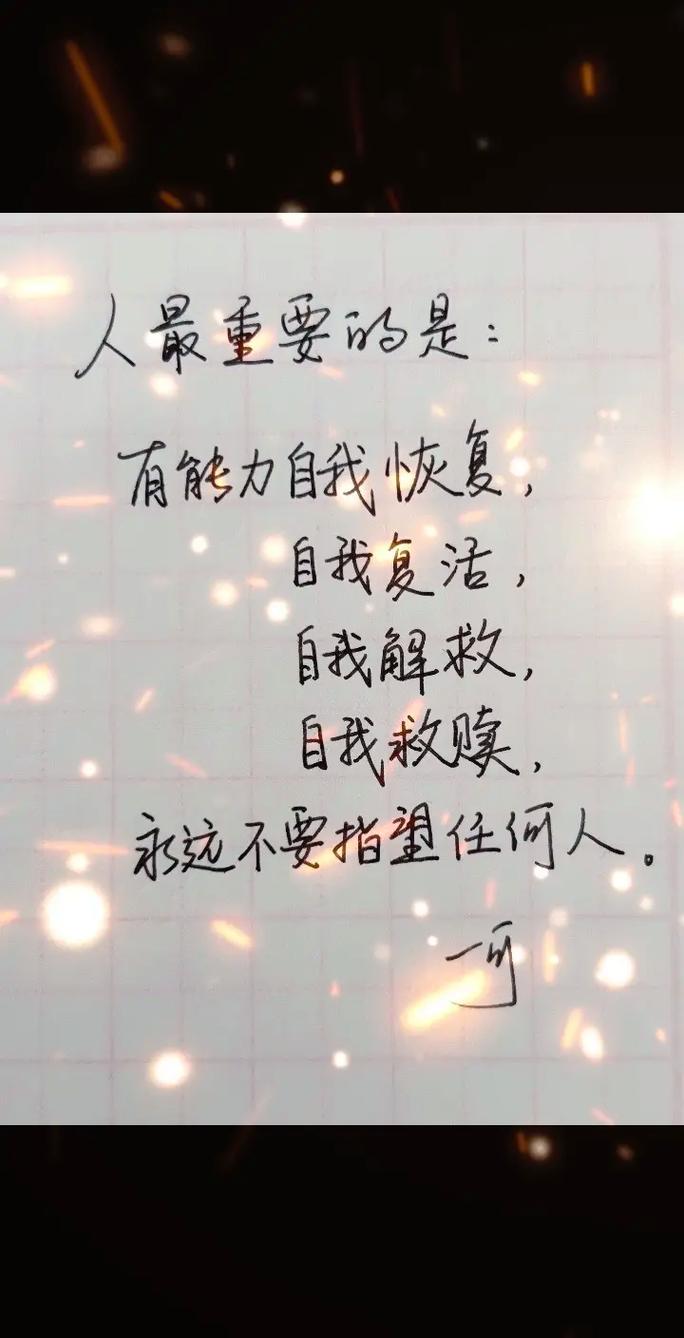 人最重要的是：
有能力自我恢复，
自我复活，
自我解救，
自我救赎，
永远不要指望任何人。
一可